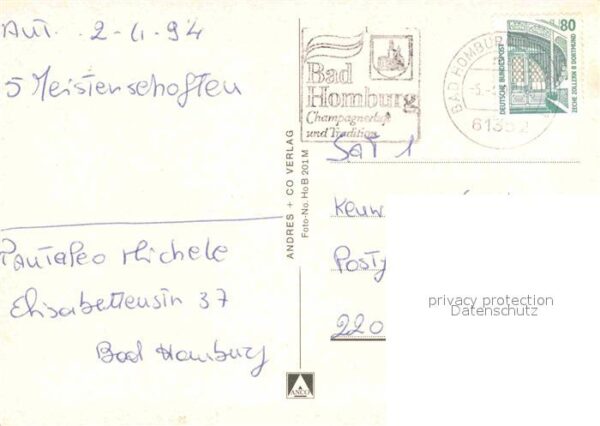 Ant. 2-4.94
5 Meistenschoften
Pantaleo Michele
Elisabettenstn 37
Bad Homburg
ANDRES + CO VERLAG
Foto-No. HoB 201 M
ANCO
Bad
Homburg
Champagnerluft
und Tradition
BAD HOMBU
61352
80
DEUTSCHE BUNDESPOST
ZECHE ZOLLERN II DORTMUND
SAT 1
Kenw
Post
220
privacy protection
Datenschutz